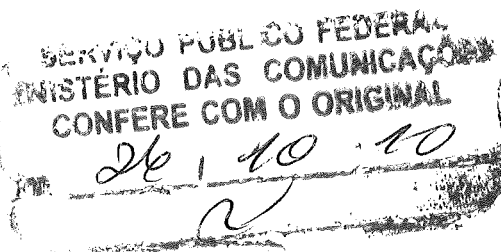 SERVIÇO PÚBLICO FEDERAL
MINISTÉRIO DAS COMUNICAÇÕES
CONFERE COM O ORIGINAL
26, 10, 10